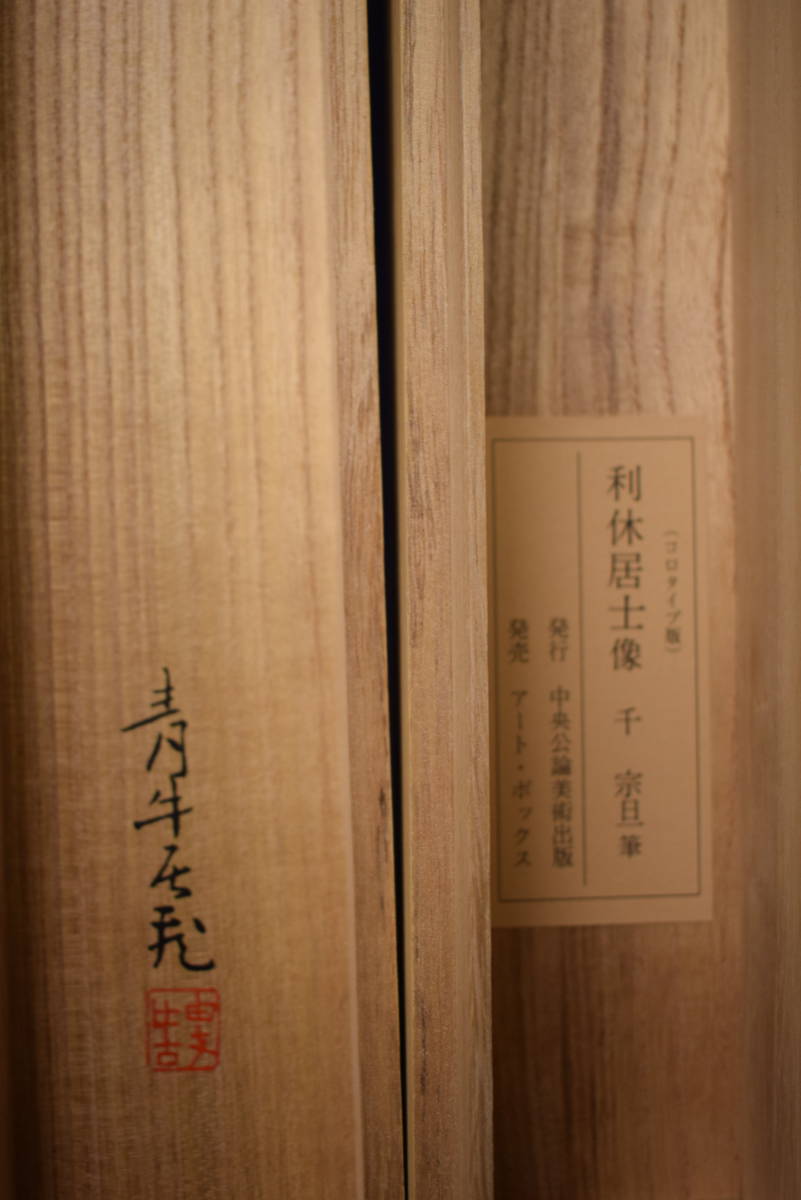 （コロタイプ版）
利休居士像 千 宗旦筆
発行 中央公論美術出版
発売 アート・ボックス
青牛居